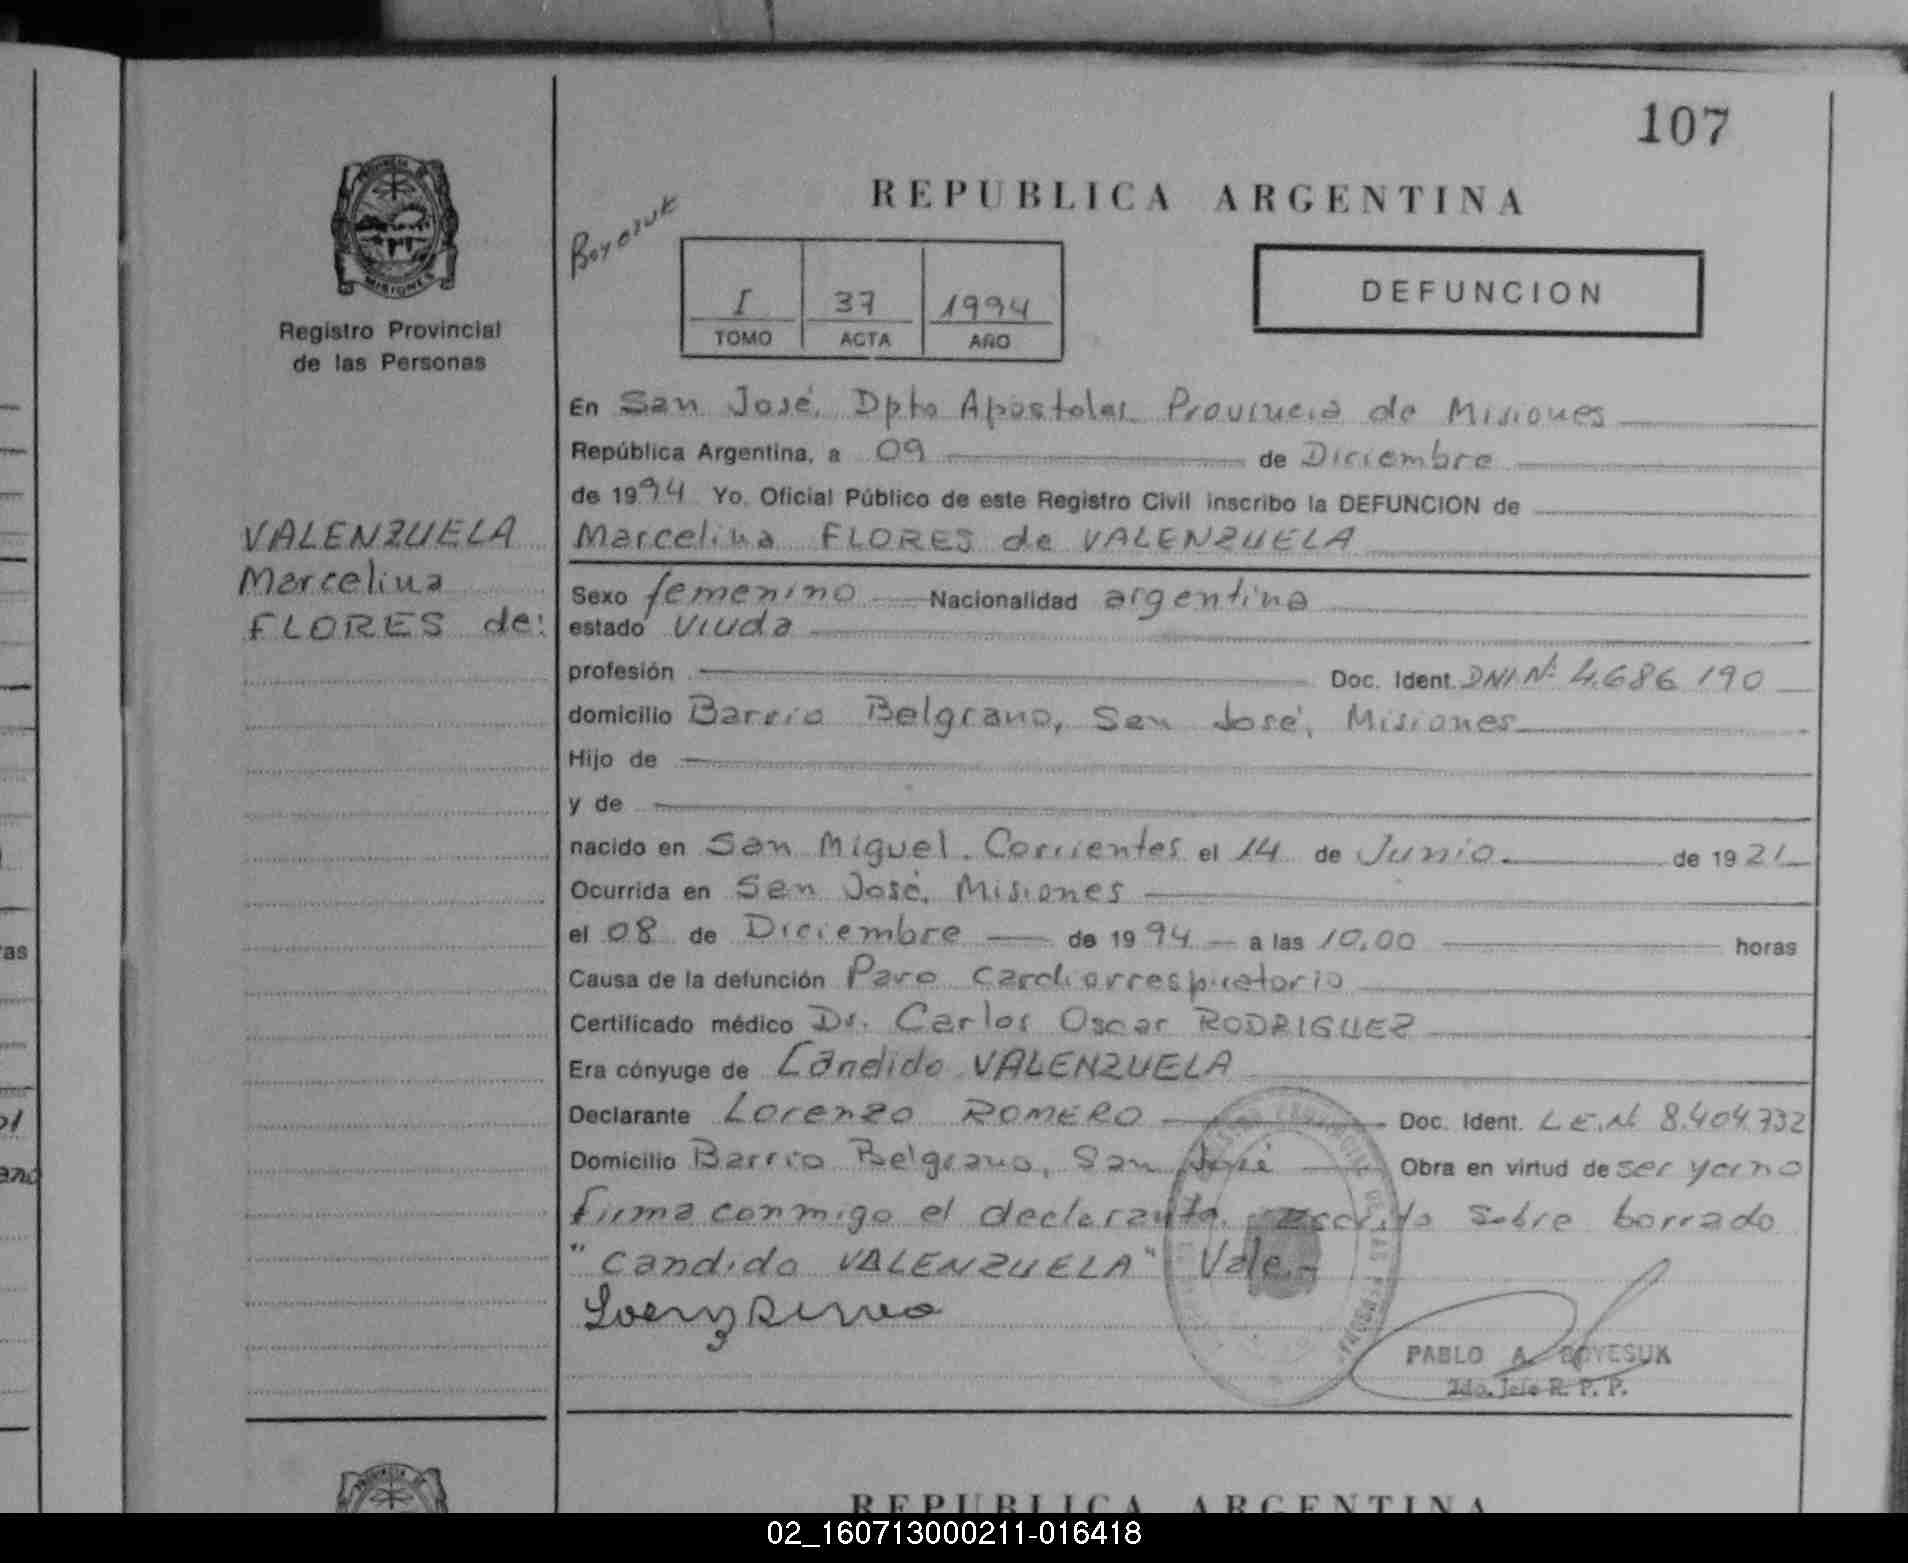 107
REPUBLICA ARGENTINA
PROVINCIA DE
MISIONES
Registro Provincial
de las Personas
Boyesuk
I 37 1994
TOMO ACTA AÑO
DEFUNCION
VALENZUELA
Marcelina
FLORES de:
En San José, Dpto Apostoles Provincia de Misiones
República Argentina, a 09 de Diciembre
de 1994 Yo, Oficial Público de este Registro Civil inscribo la DEFUNCION de
Marcelina FLORES de VALENZUELA
Sexo femenino Nacionalidad argentina
estado viuda
profesión Doc. Ident. DNI.Nº 4.686.190
domicilio Barrio Belgrano, San José, Misiones
Hijo de
y de
nacido en San Miguel. Corrientes el 14 de Junio de 1921
Ocurrida en San José, Misiones
el 08 de Diciembre de 1994 a las 10.00 horas
Causa de la defunción Paro cardiorrespiratorio
Certificado médico Dr. Carlos Oscar RODRIGUEZ
Era cónyuge de Cándido VALENZUELA
Declarante Lorenzo ROMERO Doc. Ident. L.E.Nº 8.404.732
Domicilio Barrio Belgrano, San José Obra en virtud de ser yerno
firma conmigo el declarante. escrito sobre borrado
"Candido VALENZUELA" Vale.-
PABLO A. BOYESUK
2do. Jefe R. P. P.
REPUBLICA ARGENTINA
02_160713000211-016418